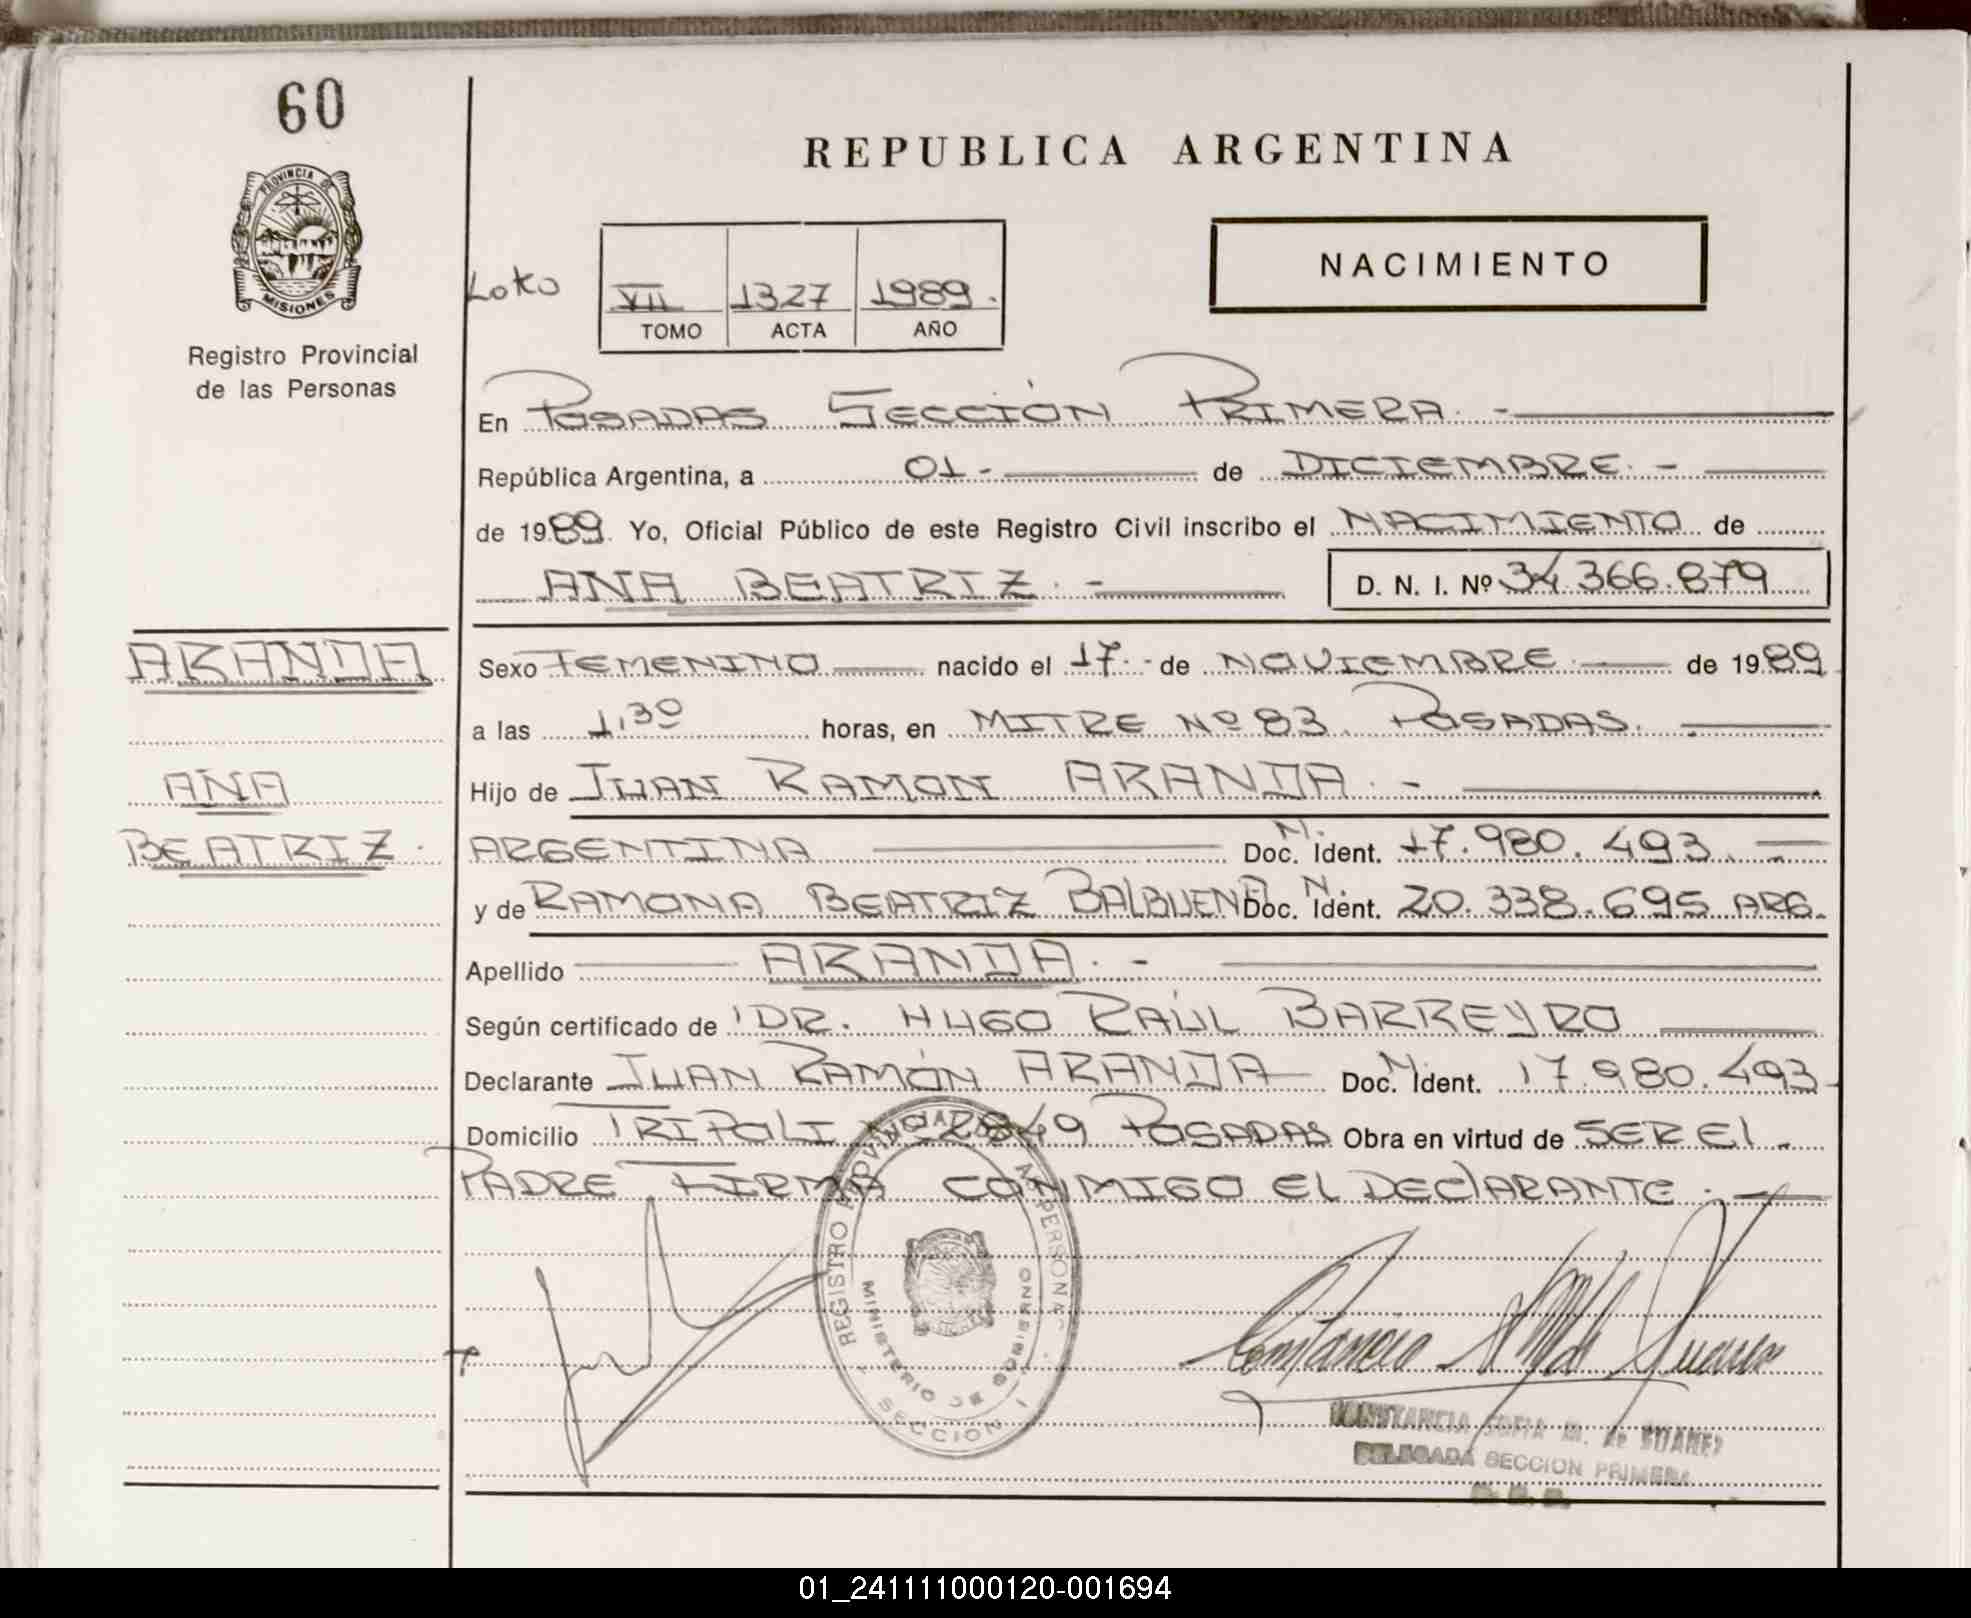 60
REPUBLICA ARGENTINA
PROVINCIA DE
MISIONES
Registro Provincial
de las Personas
Loko
VII 1327 1989.
TOMO ACTA AÑO
NACIMIENTO
En POSADAS SECCIÓN PRIMERA. -
República Argentina, a 01 - de DICIEMBRE. -
de 1989. Yo, Oficial Público de este Registro Civil inscribo el NACIMIENTO de
ANA BEATRIZ. - D. N. I. Nº 34.366.879
ARANDA
ANA
BEATRIZ.
Sexo FEMENINO nacido el 17 - de NOVIEMBRE. de 1989
a las 1,30 horas, en MITRE Nº 83. POSADAS.
Hijo de JUAN RAMON ARANDA. -
ARGENTINA Doc. N. Ident. 17.980.493.
y de RAMONA BEATRIZ BALBUENA Doc. N. Ident. 20.338.695 ARG.
Apellido ARANDA. -
Según certificado de DR. HUGO RAÚL BARREYRO
Declarante JUAN RAMÓN ARANDA Doc. N. Ident. 17.980.493
Domicilio TRIPOLI Nº 2849 POSADAS Obra en virtud de SER El
PADRE FIRMA CONMIGO EL DEClARANTE.
REGISTRO PROVINCIAL PERSONAS
MINISTERIO DE GOBIERNO
SECCION 1
CONSTANCIA SOFIA M. de SUAREZ
DELEGADA SECCION PRIMERA
01_241111000120-001694